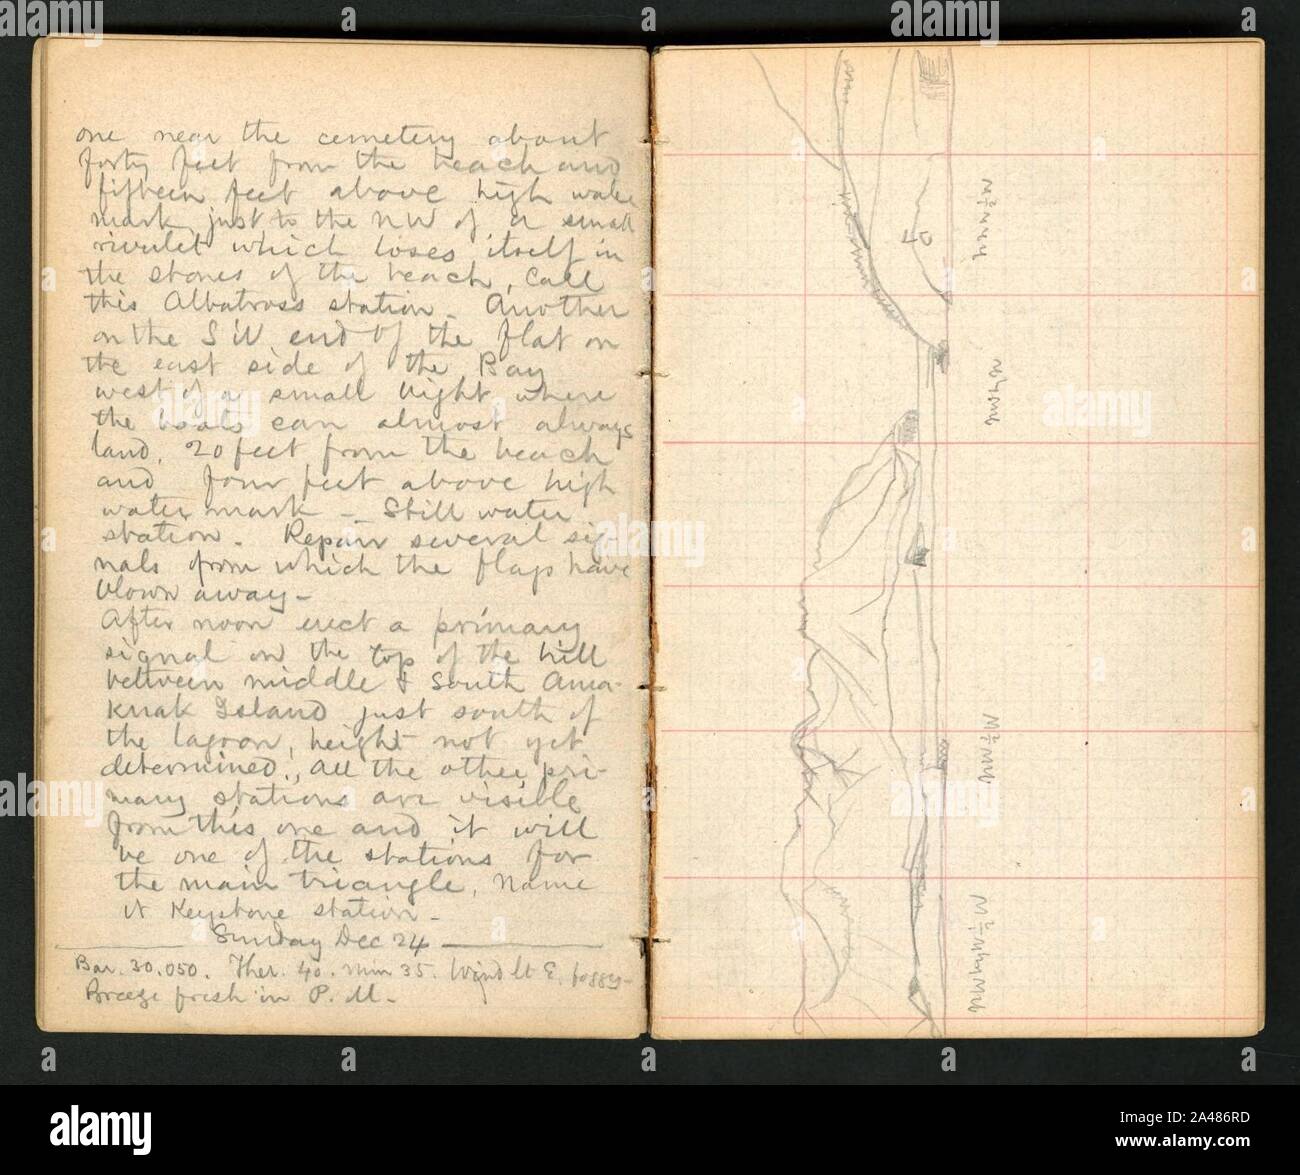 one near the cemetery about
forty feet from the beach and
fifteen feet above high water
mark just to the NW of a small
rivulet which loses itself in
the stones of the beach, call
this Albatross station. Another
on the SW end of the flat on
the east side of the Bay
west of a small bight where
the boats can almost always
land, 20 feet from the beach
and four feet above high
water mark - Still water
station. Repair several sig-
nals from which the flags have
blown away -
After noon erect a primary
signal on the top of the hill
between middle & South Ama-
knak Island just south of
the lagoon, height not yet
determined., all the other pri-
mary stations are visible
from this one and it will
be one of the stations for
the main triangle, Name
it Keystone station -
Sunday Dec 24
Bar. 30.050. Ther. 40. min 35. Wind lt E. foggy -
Breeze fresh in P. M. -
alamy
Image ID: 2A486RD
www.alamy.com